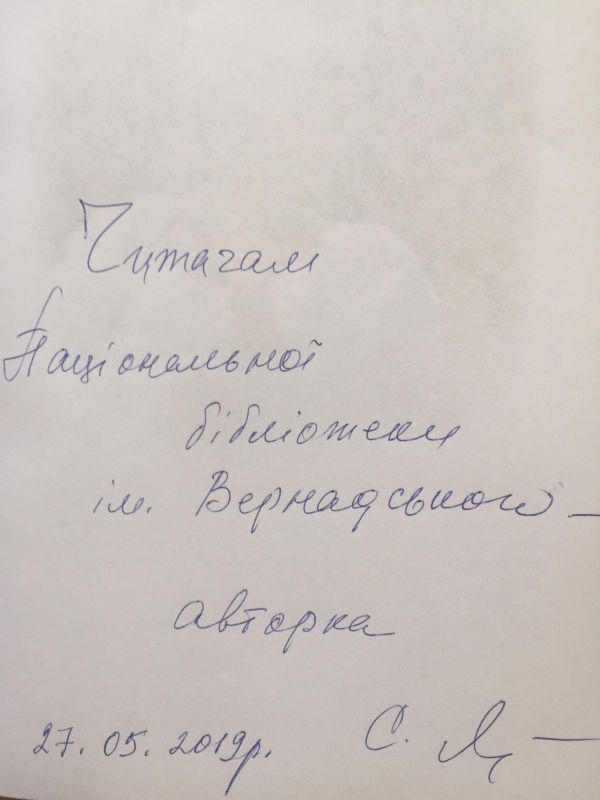 Читачам
Національної
бібліотеки
ім. Вернадського –
авторка
27.05.2019р. С.